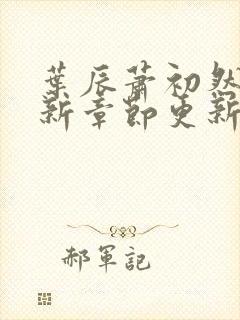 葉辰蕭初然
新章節更新
郝軍記